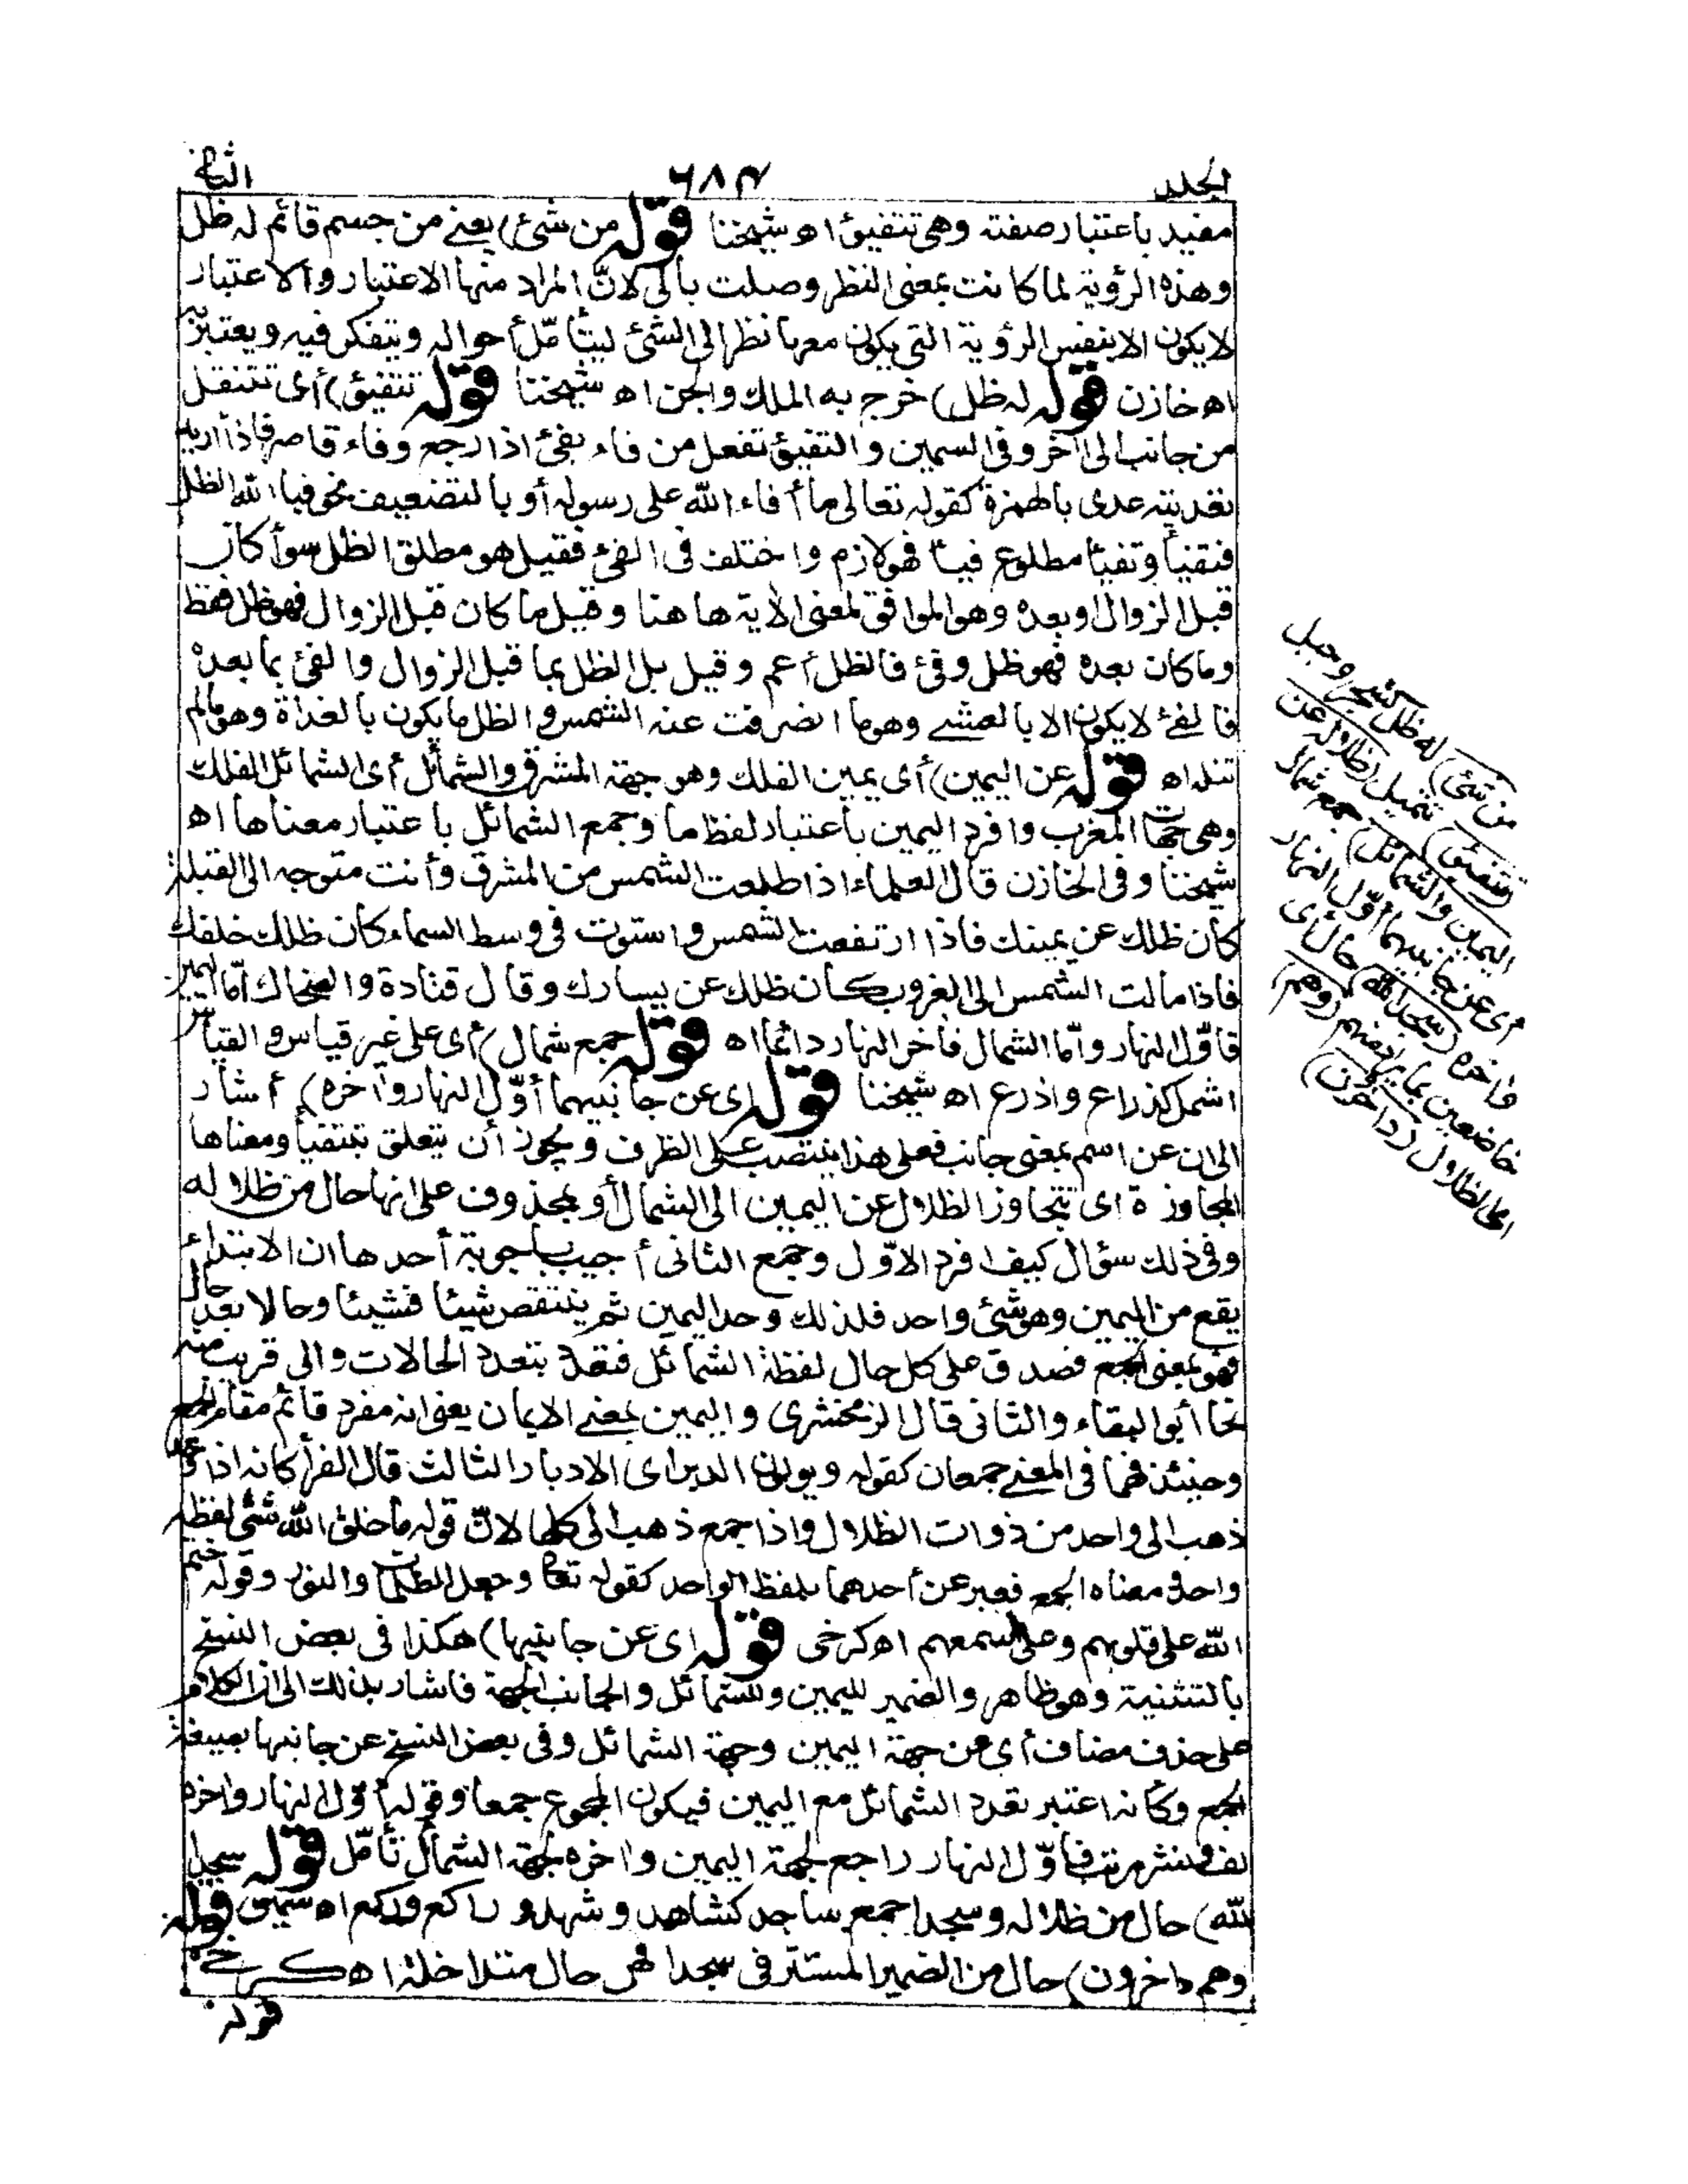 الجلد
٦٨٣
الثانى
مفيد باعتبار صفته وهى تتفيؤ اه شيخنا قوله من شئ) يعنى من جسم قائم له ظل
وهذه الرؤية لما كانت بمعنى النظر وصلت بالى لانّ المراد منها الاعتبار والاعتبار
لا يكون الا بنفس الرؤية التى يكون معها نظر الى الشئ ليتأمّل أحواله ويتفكر فيه ويعتبر به
اه خازن قوله له ظل) خرج به الملك والجن اه شيخنا قوله تتفيؤ) أى تتنقل
من جانب الى آخر وفى السمين والتفيؤ تفعل من فاء يفئ اذا رجع وفاء قاصر فاذا أريد
تعديته عدى بالهمزة كقوله تعالى ما أفاء الله على رسوله أو بالتضعيف نحو فيأ الله الظل
فتفيأ وتفيأ مطاوع فيأ فهو لازم واختلف فى الفئ فقيل هو مطلق الظل سوأ كان
قبل الزوال او بعده وهو الموافق لمعنى الاية ها هنا وقيل ما كان قبل الزوال فهو ظل فقط
وما كان بعده فهو ظل وفئ فالظل أعم وقيل بل الظل بما قبل الزوال والفئ بما بعده
فالفئ لا يكون الا بالعشى وهو ما انصرفت عنه الشمس والظل ما يكون بالغداة وهو ما لم
تنله اه قوله عن اليمين) أى يمين الفلك وهو جهة المشرق والشمائل أى الشمائل الفلك
وهى جهات المغرب وافرد اليمين باعتبار لفظ ما وجمع الشمائل باعتبار معناها اه
شيخنا وفى الخازن قال العلماء اذا طلعت الشمس من المشرق وأنت متوجه الى القبلة
كان ظلك عن يمينك فاذا ارتفعت الشمس واستوت فى وسط السماء كان ظلك خلفك
فاذا مالت الشمس الى الغروب كان ظلك عن يسارك وقال قتادة والضحاك أمّا اليمين
فأوّل النهار وأمّا الشمال فآخر النهار دائما اه قوله جمع شمال) أى على غير قياس والقياس
اشمل كذراع واذرع اه شيخنا قوله اى عن جانبيهما أوّل النهار وآخره) أشار
الى ان عن اسم بمعنى جانب فعلى هذا ينتصب على الظرف ويجوز أن تتعلق بتتفيأ ومعناها
المجاوزة اى تتجاوز الظلال عن اليمين الى الشمال أو بمحذوف على انها حال من ظلاله
وفى ذلك سؤال كيف افرد الاوّل وجمع الثانى أجيب باجوبة أحدها ان الابتداء
يقع من اليمين وهو شئ واحد فلذلك وحد اليمين ثم ينتقص شيئا فشيئا وحالا بعد حال
فهو بمعنى الجمع فصدق على كل حال لفظة الشمائل فتعدّد بتعدد الحالات والى قريب منه
نحا أبو البقاء والثانى قال الزمخشرى واليمين بمعنى الايمان يعنى انه مفرد قائم مقام الجمع
وحينئذ فهما فى المعنى جمعان كقوله ويولون الدبر اى الادبار الثالث قال الفرأ كانه اذا وحد
ذهب الى واحد من ذوات الظلال واذا جمع ذهب الى كلها لانّ قوله ما خلق الله من شئ لفظه
واحد ومعناه الجمع فعبر عن أحدهما بلفظ الواحد كقوله تعا وجعل الظلمات والنور وقوله ختم
الله على قلوبهم وعلى سمعهم اه كرخى قوله اى عن جانبيها) هكذا فى بعض النسخ
بالتثنية وهو ظاهر والضمير لليمين وللشمائل والجانب الجهة فاشار بذلك الى ان الكلام
على حذف مضاف أى عن جهة اليمين وجهة الشمائل وفى بعض النسخ عن جانبها بصيغة
الجمع وكأنه اعتبر تعدد الشمائل مع اليمين فيكون المجموع جمعا وقوله أوّل النهار واخره
لف ونشر مرتب فأوّل النهار راجع لجهة اليمين واخره لجهة الشمأل تأمّل قوله سجدا
لله) حال من ظلاله وسجدا جمع ساجد كشاهد وشهد و راكع وركع اه سمين قوله
وهم داخرون) حال من الضمير المستتر فى سجدا فهى حال متداخلة اه كرخى
قوله
من شئ) له ظل كشجر وجبل
(تتفيؤ) تتميل (ظلاله عن
اليمين والشمائل) جمع شمال
أى عن جانبيهما أوّل النهار
وآخره (سجدا لله) حال أى
خاضعين بما يراد منهم (وهم)
أى الظلال (داخرون)